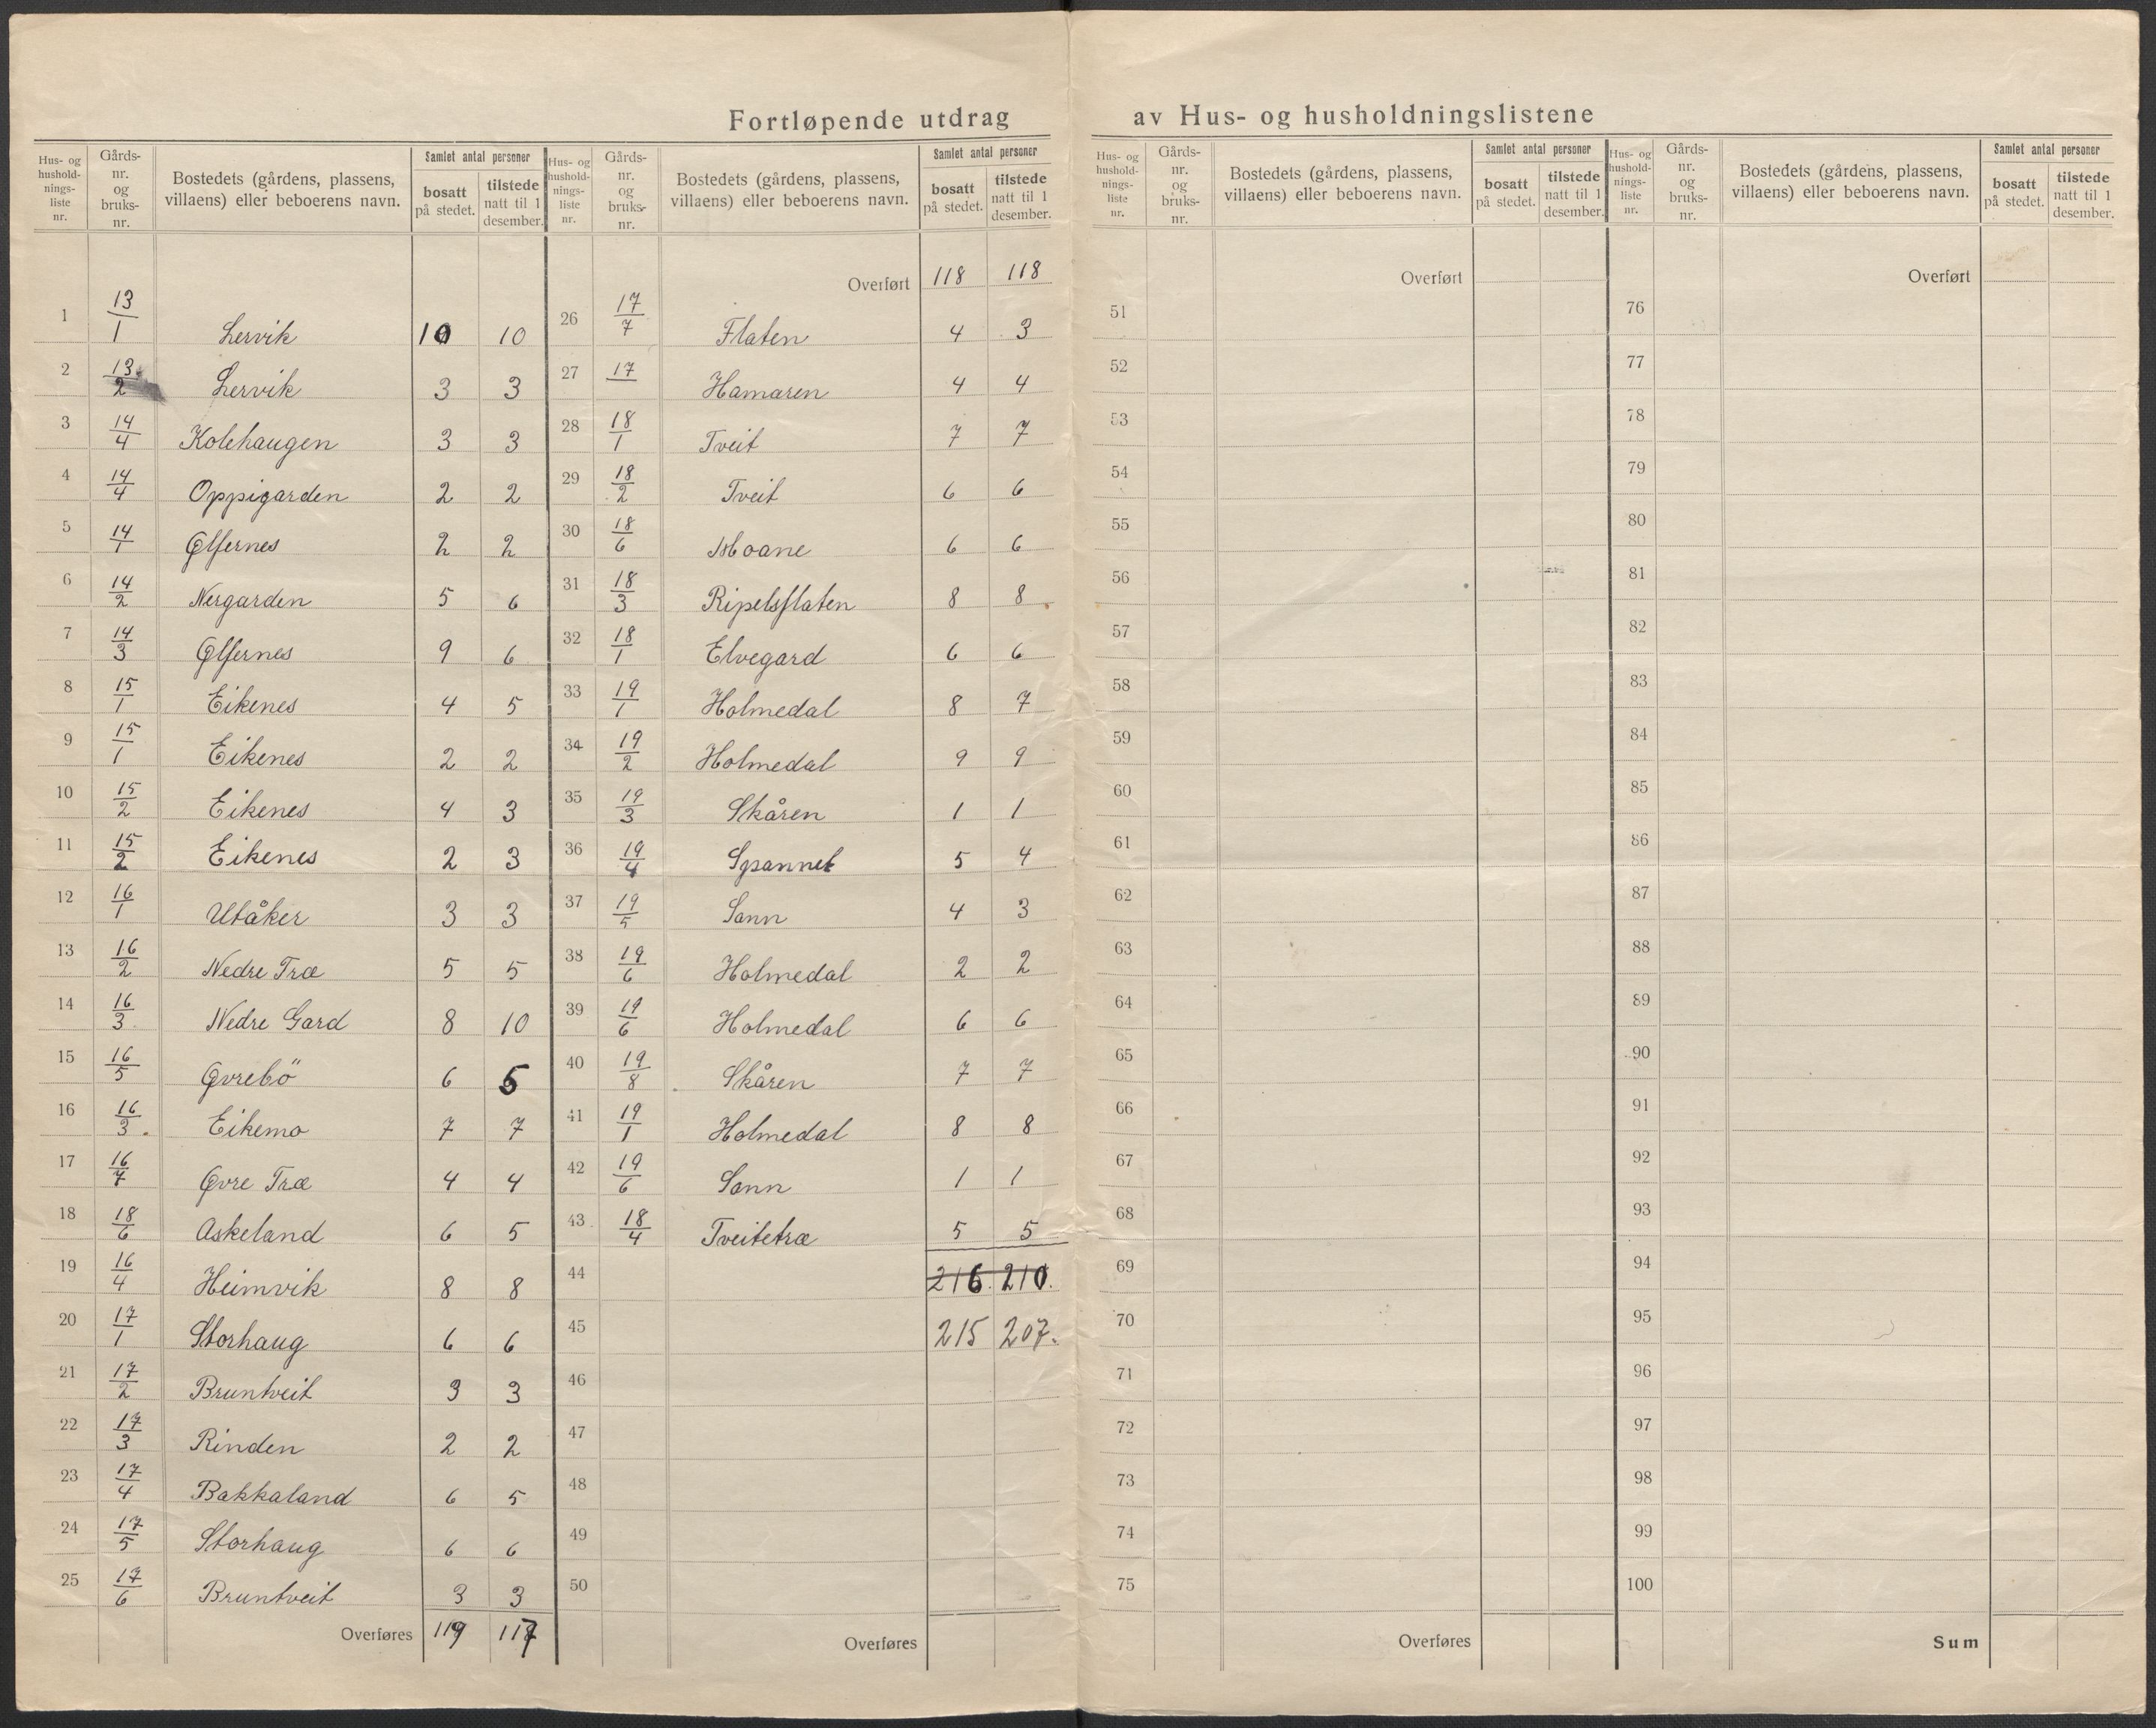 Fortløpende utdrag av Hus- og husholdningslistene
Hus- og hushold-nings-liste nr. Gårds-nr. og bruks-nr. Bostedets (gårdens, plassens, villaens) eller beboerens navn. Samlet antal personer bosatt på stedet. tilstede natt til 1 desember.
1 13/1 Lervik 10 10
2 13/2 Lervik 3 3
3 14/4 Kolehaugen 3 3
4 14/4 Oppigarden 2 2
5 14/1 Ølfernes 2 2
6 14/2 Nergarden 5 6
7 14/3 Ølfernes 9 6
8 15/1 Eikenes 4 5
9 15/1 Eikenes 2 2
10 15/2 Eikenes 4 3
11 15/2 Eikenes 2 3
12 16/1 Utåker 3 3
13 16/2 Nedre Træ 5 5
14 16/3 Nedre Gard 8 10
15 16/5 Øvrebö 6 5
16 16/3 Eikemo 7 7
17 16/7 Øvre Træ 4 4
18 18/6 Askeland 6 5
19 16/4 Heimvik 8 8
20 17/1 Storhaug 6 6
21 17/2 Bruntveit 3 3
22 17/3 Rinden 2 2
23 17/4 Bakkaland 6 5
24 17/5 Storhaug 6 6
25 17/6 Bruntveit 3 3
Overføres 119 117
Hus- og hushold-nings-liste nr. Gårds-nr. og bruks-nr. Bostedets (gårdens, plassens, villaens) eller beboerens navn. Samlet antal personer bosatt på stedet. tilstede natt til 1 desember.
Overført 118 118
26 17/7 Flaten 4 3
27 17 Hamaren 4 4
28 18/1 Tveit 7 7
29 18/2 Tveit 6 6
30 18/6 Moane 6 6
31 18/3 Ripelsflaten 8 8
32 18/1 Elvegard 6 6
33 19/1 Holmedal 8 7
34 19/2 Holmedal 9 9
35 19/3 Skåren 1 1
36 19/4 Spannet 5 4
37 19/5 Sann 4 3
38 19/6 Holmedal 2 2
39 19/6 Holmedal 6 6
40 19/8 Skåren 7 7
41 19/1 Holmedal 8 8
42 19/6 Sann 1 1
43 18/4 Tveitetræ 5 5
44 216. 210.
45 215 207.
46
47
48
49
50
Overføres
Hus- og hushold-nings-liste nr. Gårds-nr. og bruks-nr. Bostedets (gårdens, plassens, villaens) eller beboerens navn. Samlet antal personer bosatt på stedet. tilstede natt til 1 desember.
Overført
51
52
53
54
55
56
57
58
59
60
61
62
63
64
65
66
67
68
69
70
71
72
73
74
75
Overføres
Hus- og hushold-nings-liste nr. Gårds-nr. og bruks-nr. Bostedets (gårdens, plassens, villaens) eller beboerens navn. Samlet antal personer bosatt på stedet. tilstede natt til 1 desember.
Overført
76
77
78
79
80
81
82
83
84
85
86
87
88
89
90
91
92
93
94
95
96
97
98
99
100
Sum